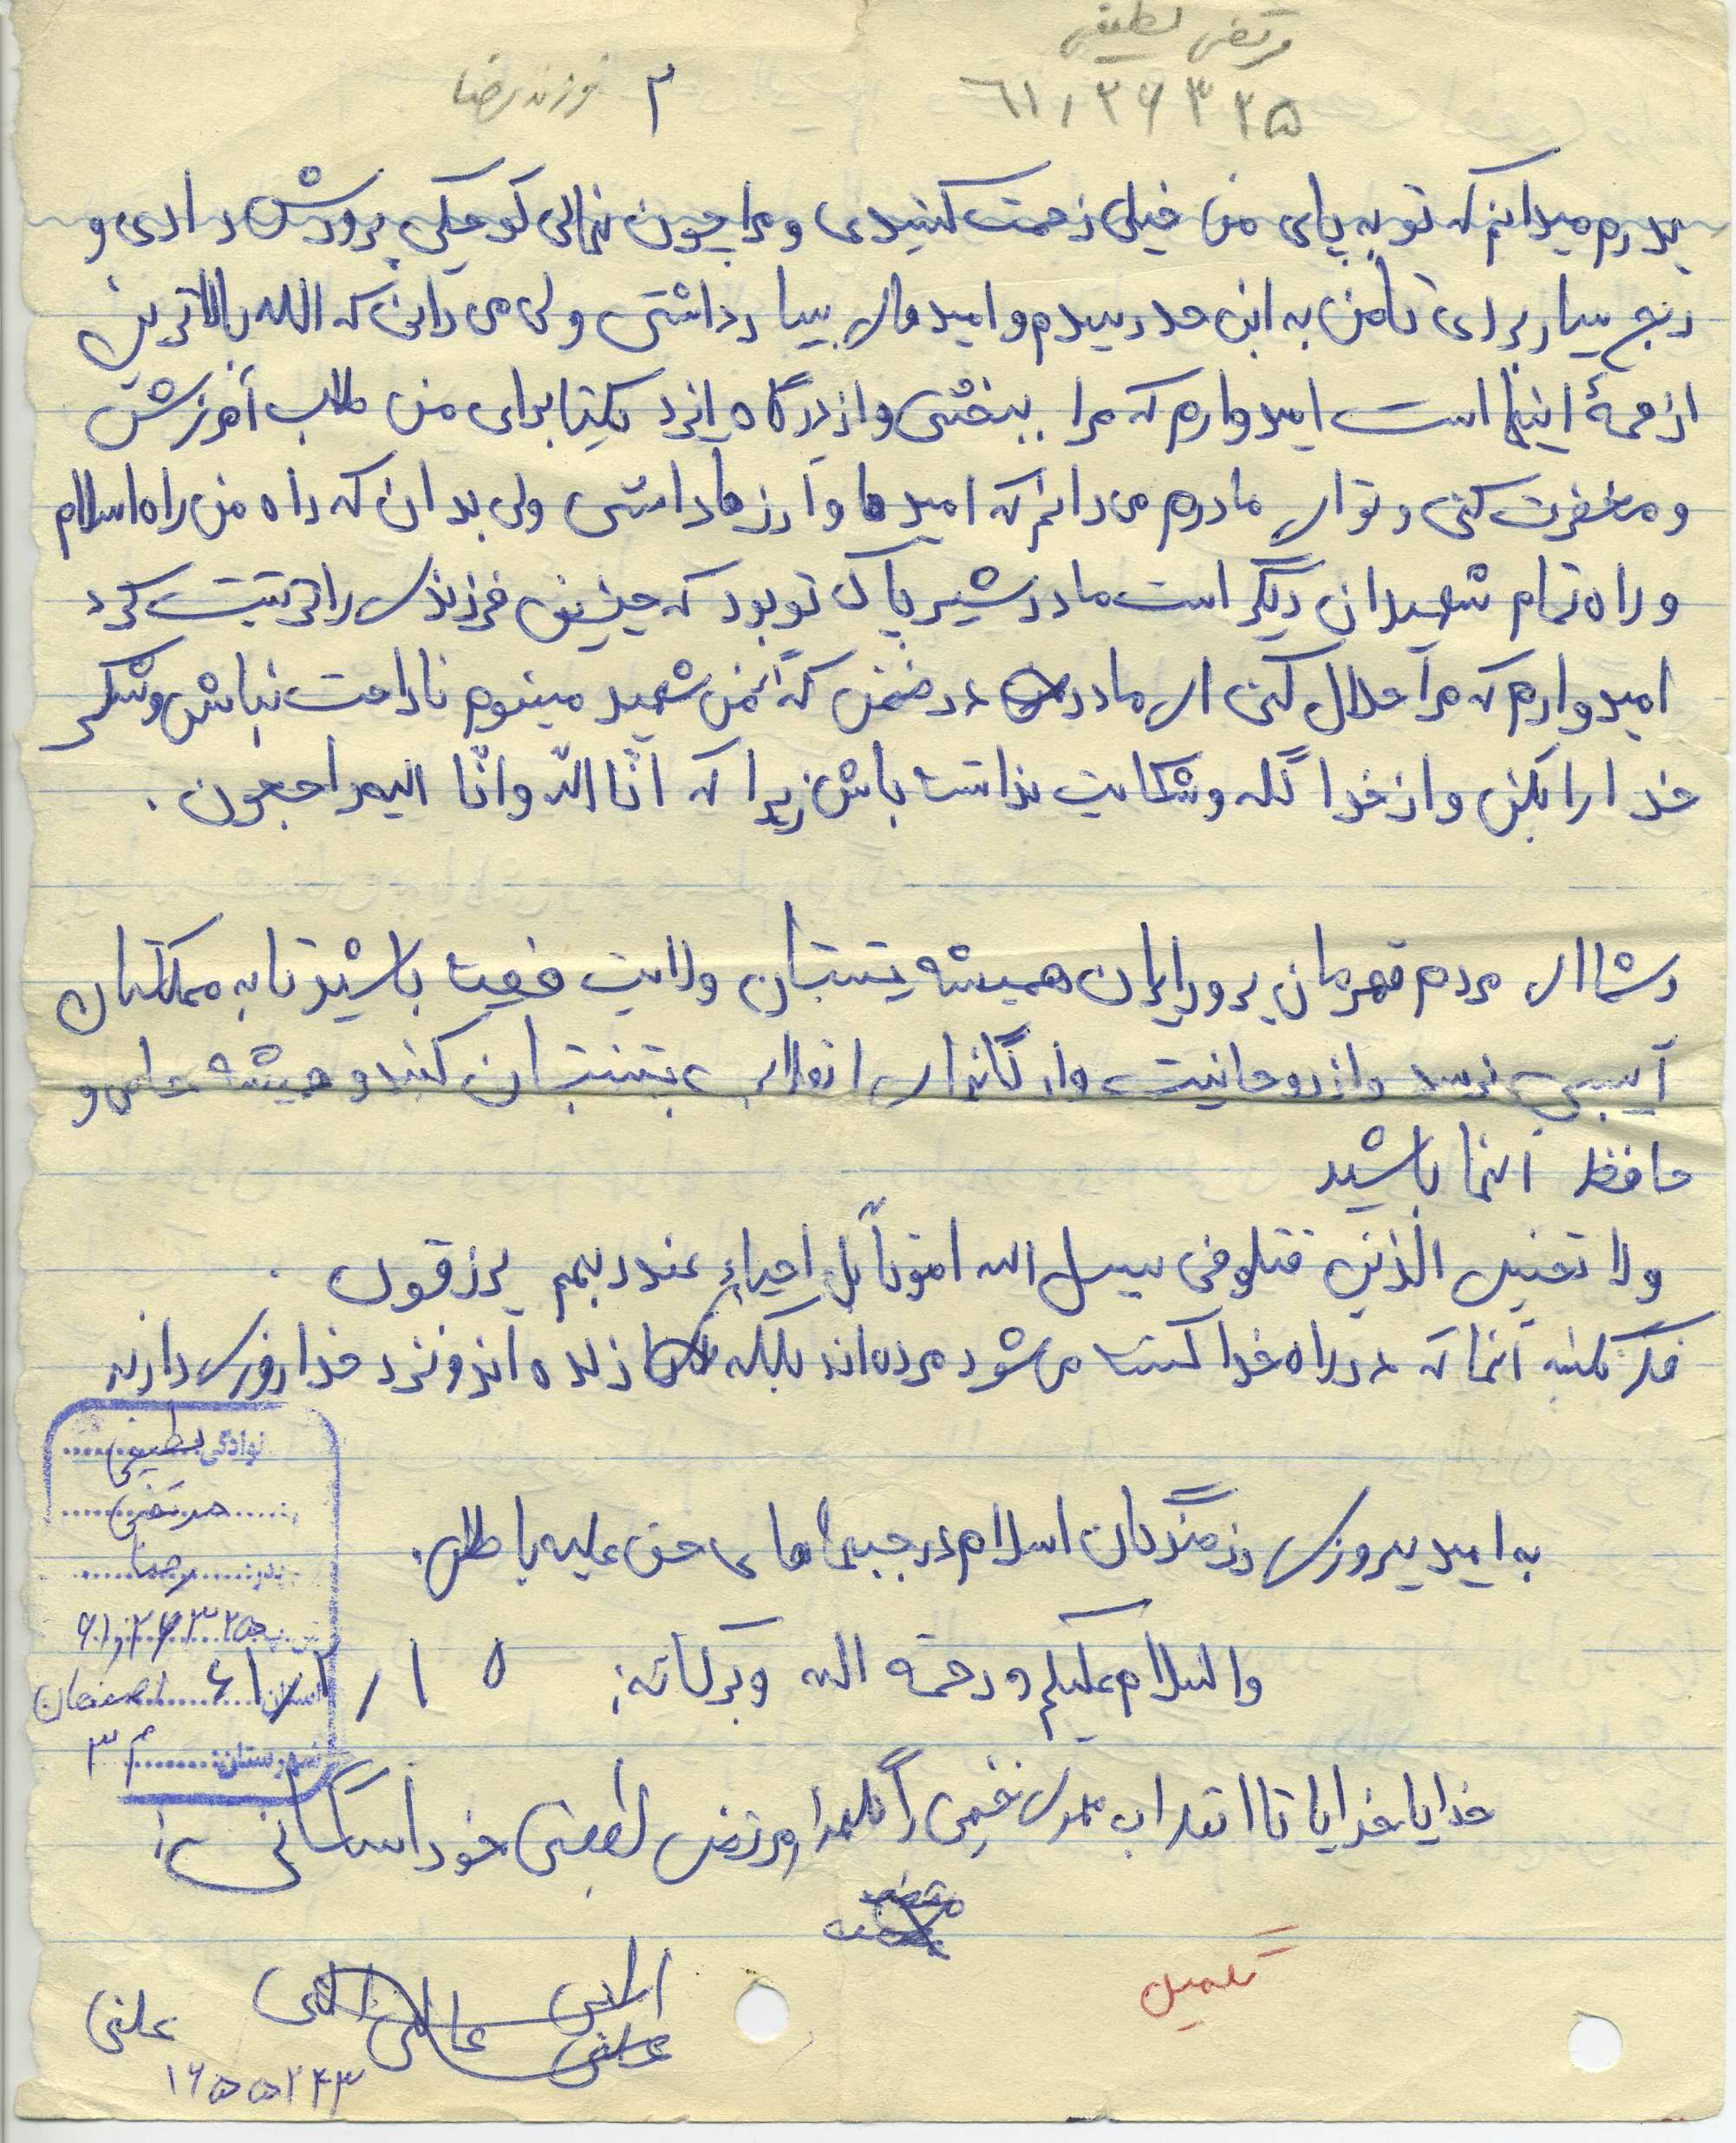 مرتضی لطیفی
۶۱۱۲۶۳۲۵ ۲ فرزند رضا
پدرم میدانم که تو به پای من خیلی زحمت کشیدی و مرا چون نهالی کوچکی پرورش دادی و
رنج بسیار بردی تا من به این حد رسیدم و امیدهای بسیار داشتی ولی می دانی که الله بالاترین
از همهٔ اینها است امیدوارم که مرا ببخشی و از درگاه ایزد یکتا برای من طلب آمرزش
و مغفرت کنی و تو ای مادرم می دانم که امیدها و آرزوها داشتی ولی بدان که راه من راه اسلام
و راه تمام شهیدان دیگر است مادر شیر پاک تو بود که چنین فرزندی را تربیت کرد
امیدوارم که مرا حلال کنی ای مادر در ضمن که من شهید میشوم ناراحت نباش و شکر
خدا را بکن و از خدا گله و شکایت نداشته باش زیرا که انّا الله وانّا الیه راجعون .
و شما ای مردم قهرمان پرور ایران همیشه پشتیبان ولایت فقیه باشید تا به مملکتتان
آسیبی نرسد و از روحانیت و ارگانهای انقلابی پشتیبان کنید و همیشه حامی و
حافظ آنها باشید
ولا تحسبن الذین قتلو فی سبیل الله امواتاً بل احیاء عند ربهم یرزقون .
فکر نکنید آنها که در راه خدا کشته می شود مرده اند بلکه زنده اند و نزد خدا روزی دارند
به امید پیروزی رزمندگان اسلام در جبهه های حق علیه باطل.
والسلام علیکم و رحمه الله و برکاته؛ ۶۱/۱/۱۵
خدایا خدایا تا انقلاب مهدی خمینی را نگهدار مرتضی لطیفی خوراسگانی؛
نوادگی: لطیفی
مرتضی
پدر: رضا
۶۱۱۲۶۳۲۵
استان: اصفهان
شهرستان: ۳۳
تکمیل
علنی
۱۶۵۵۲۴۳